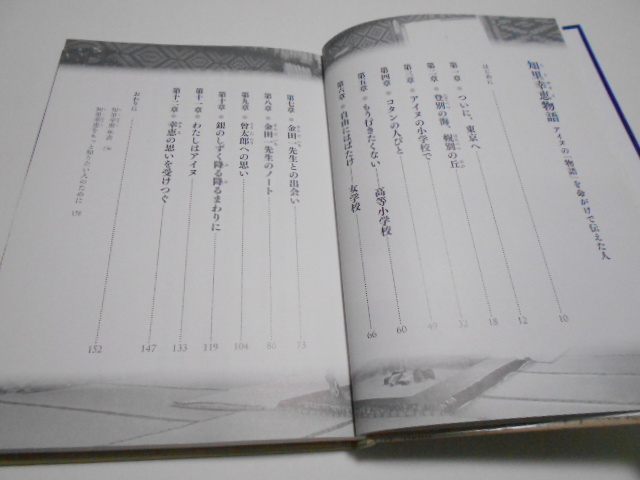 知里幸恵物語 アイヌの「物語」を命がけで伝えた人
はじめに 10
第一章 ついに、東京へ 12
第二章 登別の海、幌別の丘 18
第三章 アイヌの小学校で 32
第四章 コタンの人びと 49
第五章 もう行きたくない――高等小学校 60
第六章 自由にはばたけ――女学校 66
第七章 金田一先生との出会い 73
第八章 金田一先生のノート 86
第九章 曾太郎への思い 104
第十章 銀のしずく降る降るまわりに 119
第十一章 わたしはアイヌ 133
第十二章 幸恵の思いを受けつぐ 147
おわりに 152
知里幸恵をもっと知りたい人のために